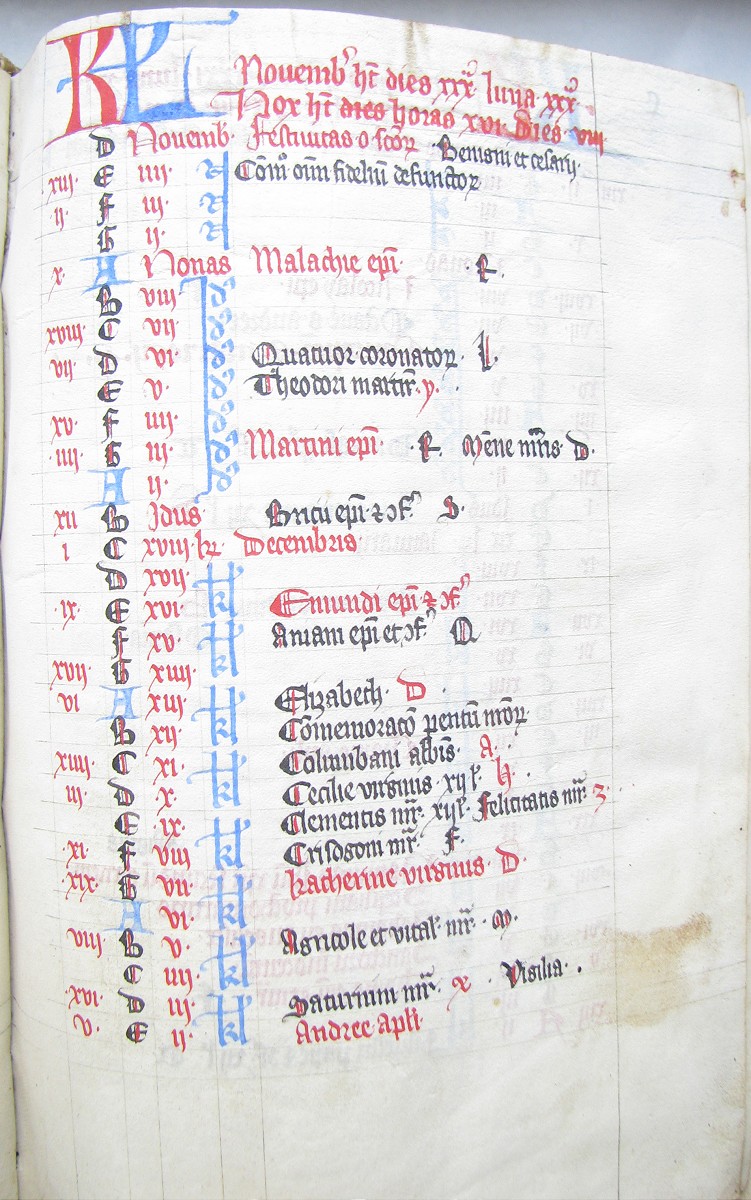 KL Nouemb ht dies xxx luna xxx
Nox ht dies horas xvi dies viii
D Nouemb. Festiuitas o scor Benigni et cesarij
xiii E iiii N Com omn fideliu defunctor
ii F iii N
G ii N
x A Nonas Malachie epi R
B viii id
xviii C vii id
vii D vi id Quatuor coronator l.
E v id Theodori martir y.
xv F iiii id
iiii G iii id Martini epi R Mene mris D.
A ii id
xii B Idus Bricii epi z cf S
i C xviii kl Decembris
D xvii kl
ix E xvi kl Emundi epi z cf
F xv kl Aniani epi et cf Q
xvii G xiiii
vi A xiii kl Elizabeth D
B xii kl Comemoraco parentu nror
C xi kl Columbani abbis A
xiiii
iii D x kl Cecilie virginis xii l h
E ix Clementis mr xii l Felicitatis mr 3
xi F viii kl Crisogoni mr F
xix G vii kl katherine virginis D
A vi kl
viii B v Agricole et vital mr m
C iiii kl
xvi D iii Saturnini mr x Vigilia.
v E ii kl Andree apli